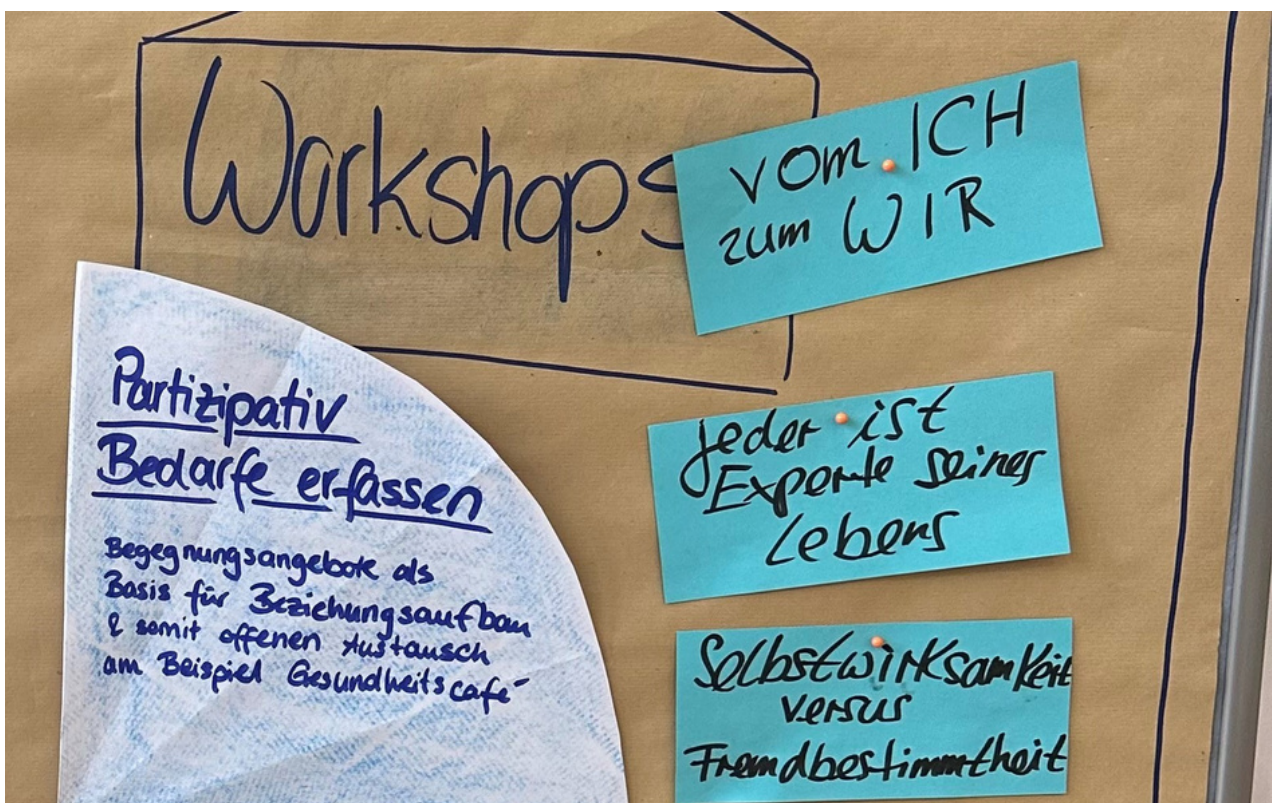 Workshops
vom ICH
zum WIR
Partizipativ
Bedarfe erfassen
Begegnungsangebote als
Basis für Beziehungsaufbau
& somit offenen Austausch
am Beispiel Gesundheitscafé
jeder ist
Experte seines
Lebens
Selbstwirksamkeit
versus
Fremdbestimmtheit